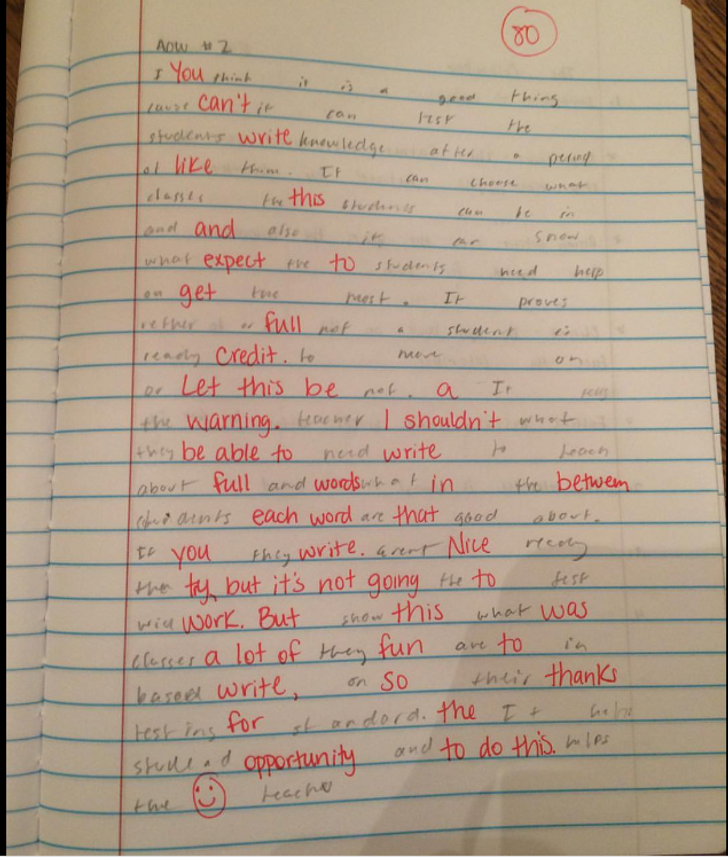 80
AOW #2
I You think it is a good thing
cause can't it can test the
students write knowledge after a period
of like them. It can choose what
classes the this students can be in
and and also it can show
what expect the to students need help
on get the most. It proves
rether or full not a student is
ready credit. to move on
or Let this be not. a It tells
the warning. teacher I shouldn't what
they be able to need write to teach
about full and words what in the betwem
students each word are that good about.
If you they write. arent Nice ready
then try, but it's not going the to test
will work. But show this what was
classes a lot of they fun are to in
based write, on so their thanks
testing for standord. the It help
student opportunity and to do this. helps
the teacher